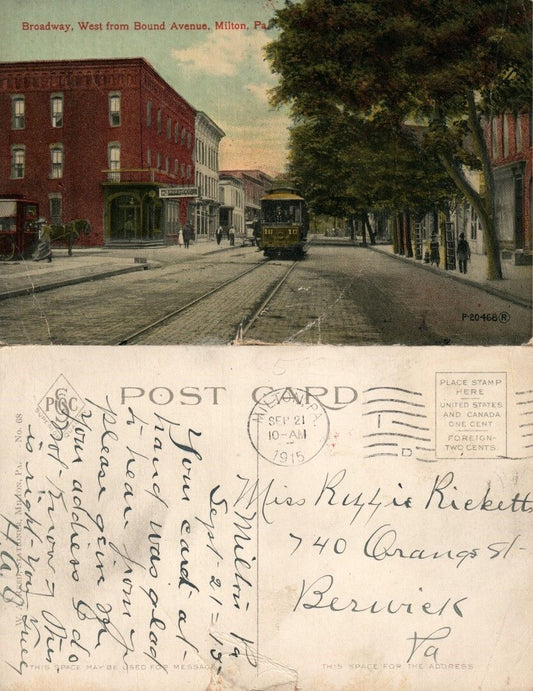 Broadway, West from Bound Avenue, Milton, Pa.
18 18
P-20468 R
POST CARD
No. 68
PLACE STAMP
HERE
UNITED STATES
AND CANADA
ONE CENT
FOREIGN-
TWO CENTS.
MILTON, PA.
SEP 21
10-AM
1915
Milton Pa
Sept-21-15-
Your card at
hand was glad
to hear from y
please give me
your address I do
not know if this
is right you
H.A.B
Miss Ruffie Ricketts
740 Orange St-
Berwick
Pa
THIS SPACE MAY BE USED FOR MESSAGE
THIS SPACE FOR THE ADDRESS